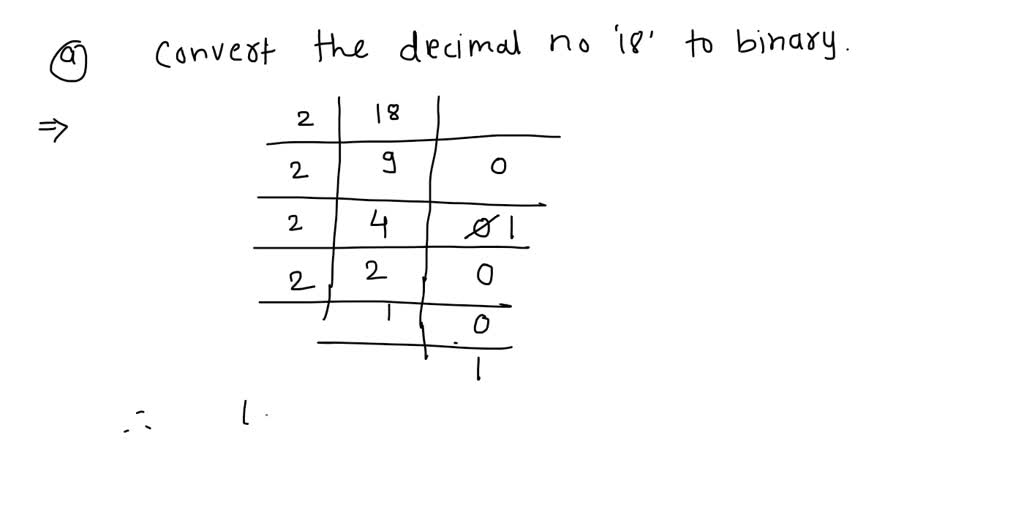 (a) Convert the decimal no '18' to binary.
⇒ 2 | 18 |
2 | 9 | 0
2 | 4 | 1
2 | 2 | 0
1 | 0
1
∴ 1